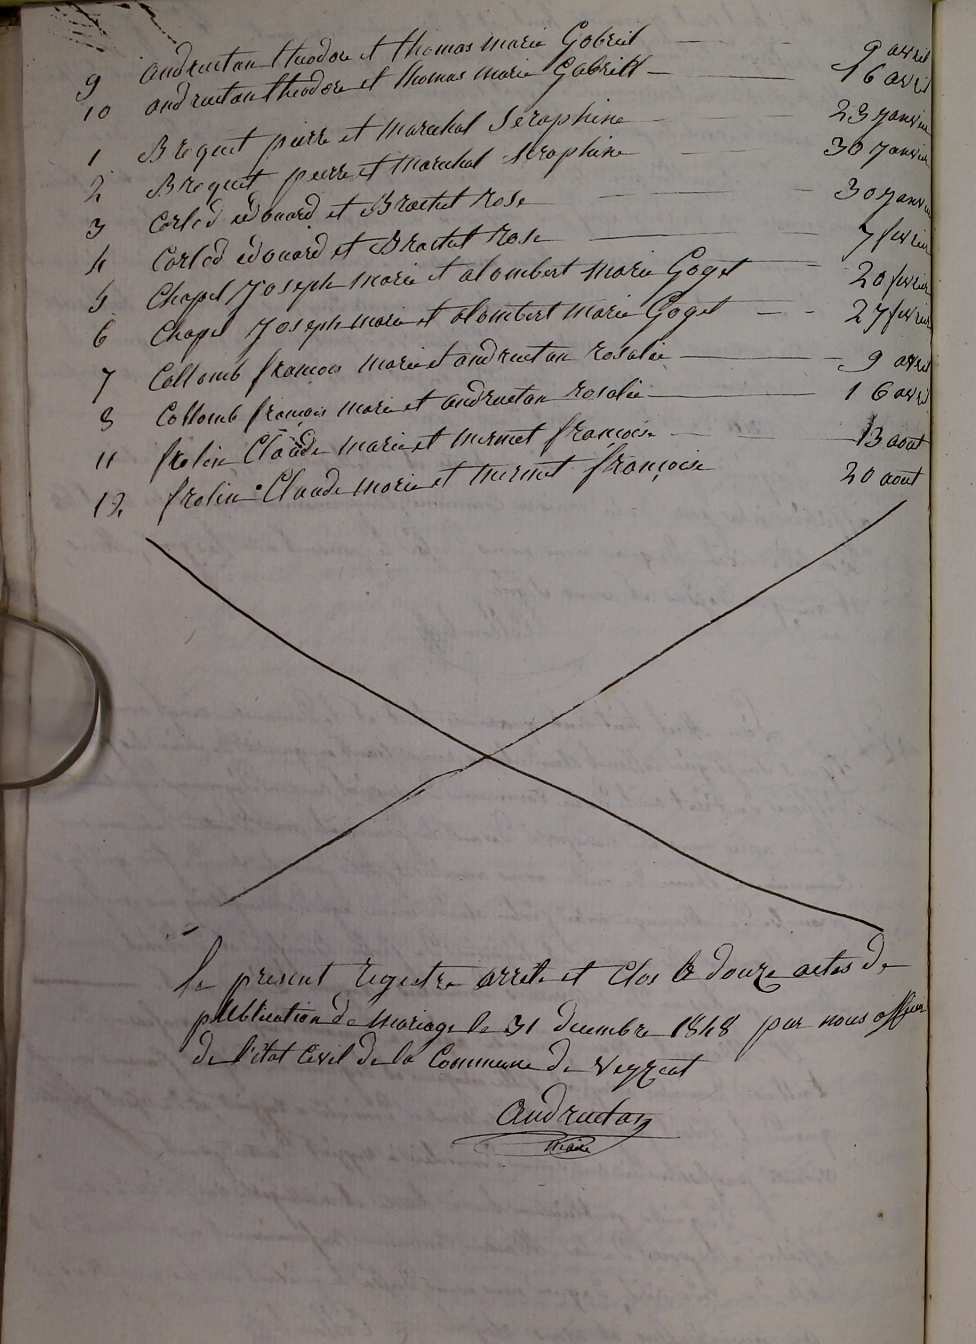 9 andruetan théodore et thomas marie Gobriel — 9 avril
10 andruetan théodore et thomas marie Gabriell — 16 avril
1 Broquet pierre et marechal Seraphine — 23 janvier
2 Broquet pierre et marechal seraphine — 30 janvier
3 Corlod edouard et Brachet rose — 30 janvier
4 Corlod edouard et Brachet rose — 7 fevrier
5 Chapel Joseph marie et alombert marie Goget — 20 fevrier
6 Chapel Joseph marie et alombert marie Goget — 27 fevrier
7 Collomb françois marie et andruetan rosalie — 9 avril
8 Collomb françois marie et andruetan rosalie — 16 avril
11 frelin Claude marie et mermet françoise — 13 aout
12 frelin Claude marie et mermet françoise 20 aout
le present registre arrete et Clos a douze actes de
publication de mariage le 31 decembre 1848 par nous officier
de l'état Civil de la Commune de Veyziat
andruetan
maire